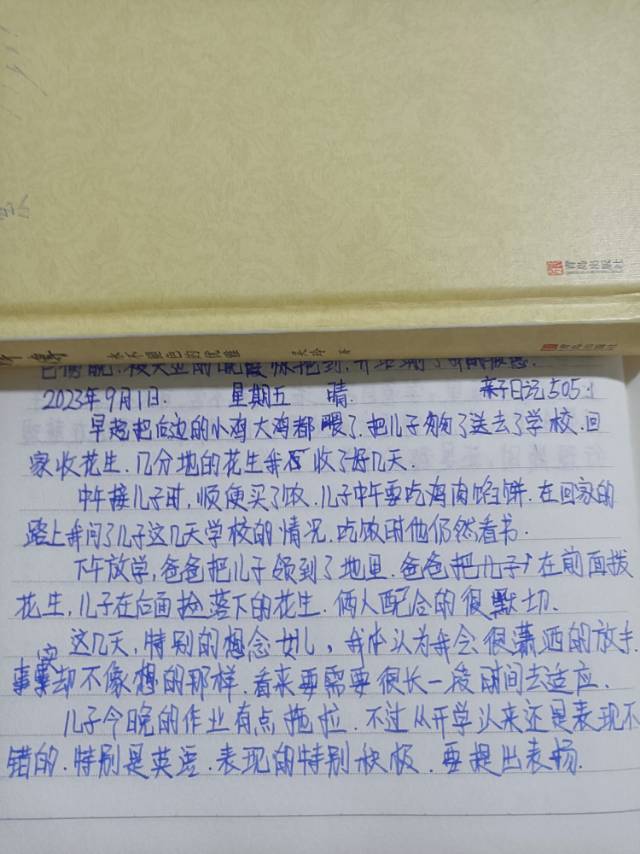 青岛出版社
永不褪色的
青岛出版社
2023年9月1日. 星期五 晴. 亲子日记505.
早起把后边的小鸡大鸡都喂了.把儿子
了送去了学校.回
家收花生.几分地的花生我收了好几天.
中午接儿子时,顺便买了饭.儿子中午要吃鸡肉馅饼.在回家的
路上我问了儿子这几天学校的情况.吃饭时他仍然看书.
下午放学,爸爸把儿子领到了地里.爸爸在前面拨
花生,儿子在后面捡落下的花生.俩人配合的很默切.
这几天,特别的想念女儿,我以为我会很潇洒的放手.
事实却不像想的那样.看来要需要很长一段时间去适应.
儿子今晚的作业有点拖拉.不过从开学以来还是表现不
错的.特别是英语.表现的特别积极.要提出表扬.